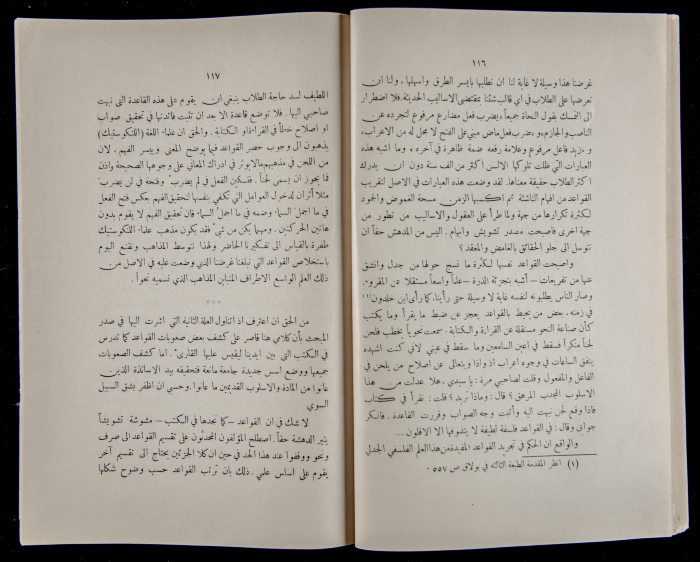 ١١٦
غرضنا هذا وسيلة لا غاية لنا ان نطلبها بايسر الطرق واسهلها، ولنا ان
نعرضها على الطلاب في اي قالب شئنا بمقتضى الاساليب الحديثة. فلا اضطرار
الى التمسك بقول النحاة جميعاً، «يضرب فعل مضارع مرفوع لتجرده عن
الناصب والجازم»، و«ضرب فعل ماض مبني على الفتح لا محل له من الاعراب»،
و«زيد فاعل مرفوع وعلامة رفعه ضمة ظاهرة في آخره»، وما اشبه هذه
العبارات التي ظلت تلوكها الالسن اكثر من الف سنة دون ان يدرك
اكثر الطلاب حقيقة معناها. لقد وضعت هذه العبارات في الاصل لتقريب
القواعد من افهام الناشئة ثم اكسبها الزمن مسحة الغموض والجمود
لكثرة تكرارها من جهة ولما طرأ على العقول والاساليب من تطور من
جهة اخرى فاصبحت مصدر تشويش وابهام. اليس من المدهش حقاً ان
نتوسل الى جلو الحقائق بالغامض والمعقد؟
واصبحت القواعد نفسها لكثرة ما نسج حولها من جدل وانشق
عنها من تفريعات – أشبه بتجزئة الذرة – علماً واسعاً مستقلا عن المقروء.
وصار الناس يطلبونه لنفسه غاية لا وسيلة حتى رأينا، كما رأى ابن خلدون (١)
في زمنه، بعض من يحيط بالقواعد يعجز عن ضبط ما يقرأ وما يكتب
كأن صناعة النحو مستقلة عن القراءة والكتابة. سمعت نحوياً يخطب فلحن
لحناً منكراً فسقط في اعين السامعين وما سقط في عيني لاني كنت اشهده
ينفق الساعات في وجوه اعراب اذ واذا ويتعالى عن اصلاح من يلحن في
الفاعل والمفعول وقلت لصاحبي مرة: يا سيدي، هلا عدلت من هذا
الاسلوب المجدب المرهق؟ قال: وماذا تريد؟ قلت: نقرأ في كتاب
فاذا وقع لحن نبهت اليه وأثبت وجه الصواب وقررت القاعدة. فانكر
جوابي وقال: في القواعد فلسفة لطيفة لا يتذوقها الا الاقلون ...
والواقع ان الحكم في تجريد القواعد المفيدة من هذا العلم الفلسفي الجدلي
(١) انظر المقدمة الطبعة الثالثة في بولاق ص ٥٥٧.
١١٧
اللطيف لسد حاجة الطلاب ينبغي ان يقوم على هذه القاعدة التي نبهت
صاحبي اليها. فلا توضع قاعدة الا بعد ان تثبت فائدتها في تحقيق صواب
او اصلاح خطأ في القراءة او الكتابة. والحق ان علماء اللغة (اللنكوستيك)
يذهبون الى وجوب حصر القواعد فيما يوضح المعنى وييسر الفهم، لان
من اللحن في مذهبهم ما لا يؤثر في ادراك المعاني على وجوهها الصحيحة واذن
فما يجوز ان يسمى لحناً. فتسكين الفعل في لم يضرب وفتحه في لن يضرب
مثلا أثران لدخول العوامل التي تكفي بنفسها لتحقيق الفهم بعكس فتح الفعل
في ما اجمل السماء وضمه في ما اجمل السماء فان تحقيق الفهم لا يقوم بدون
هاتين الحركتين. ومهما يكن من شيء فقد يكون مذهب علماء اللنكوستيك
طفرة بالقياس الى تفكيرنا الحاضر ولهذا نتوسط المذاهب ونقنع اليوم
باستخلاص القواعد التي تبلغنا غرضنا الذي وضعت عليه في الاصل من
ذلك العلم الواسع الاطراف المتباين المذاهب الذي نسميه نحواً.
***
من الحق ان اعترف اذ اتناول العلة الثانية التي اشرت اليها في صدر
المبحث بأن كلامي هنا قاصر على كشف بعض صعوبات القواعد كما تدرس
في الكتب التي بين ايدينا ليقيس عليها القارىء. اما كشف الصعوبات
جميعها ووضع اسس جديدة جامعة مانعة فتحقيقه بيد الاساتذة الذين
عانوا من المادة والاسلوب القديمين ما عانوا. وحسبي ان اظفر بشق السبيل
السوي
لا شك في ان القواعد – كما نجدها في الكتب – مشوشة تشويشاً
يثير الدهشة حقاً. اصطلح المؤلفون المحدثون على تقسيم القواعد الى صرف
ونحو ووقفوا عند هذا الحد في حين ان كلا الجزئين يحتاج الى تقسيم آخر
يقوم على اساس علمي. ذلك بان ترتب القواعد حسب وضوح شكلها